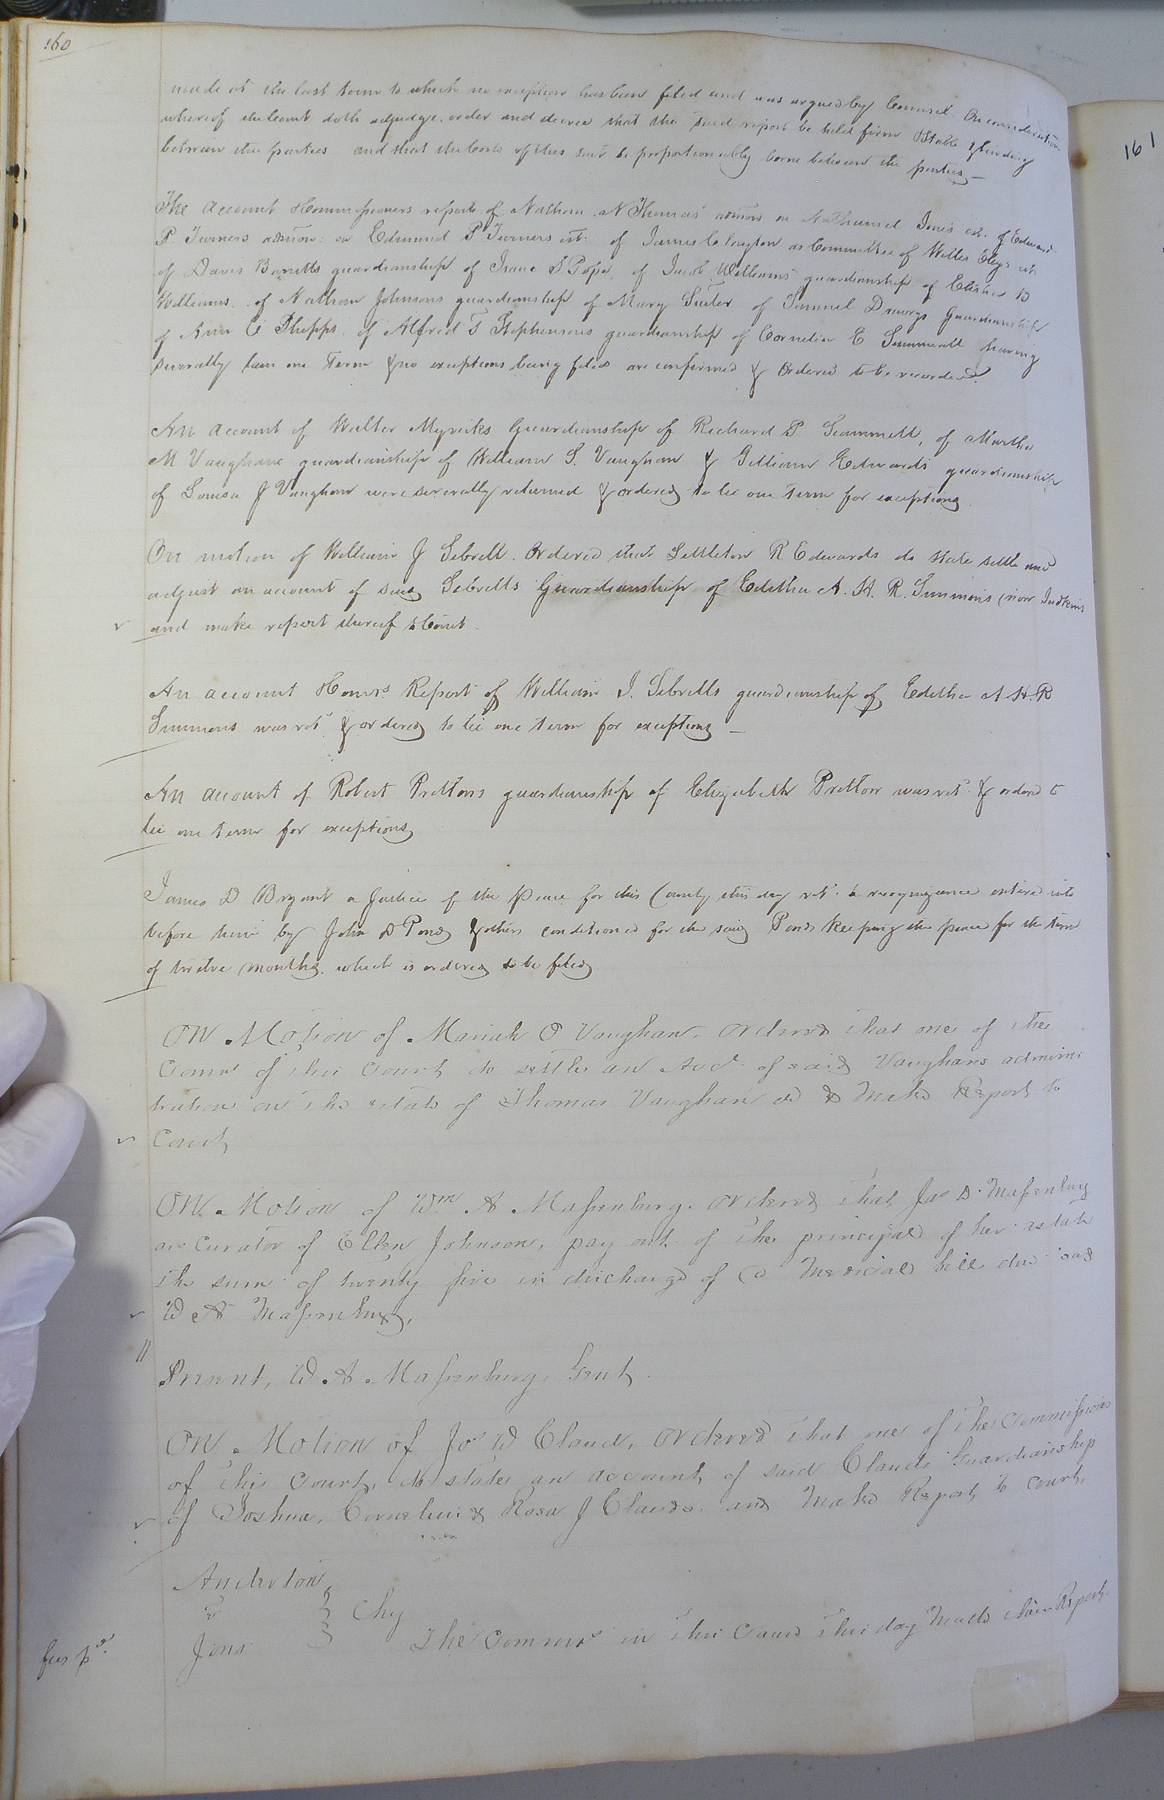 160
161
made at the last term to which no exception has been filed and was argued by Counsel On consideration
whereof the Court doth adjudge, order and decree that the said report be held firm & Stable & binding
between the parties and that the Costs of this suit be proportionably borne between the parties
The Account & Commissioners reports of Nathan N Thomas admon on Nathaniel est. of Edward
P Turners admon: on Edmund P Turners est: of James Clayton as Committee of Willis
of Davis Barretts guardianship of Isaac S Pope, of Jacob Williams guardianship of Elisha D
Williams, of Nathan Johnsons guardianship of Mary Suiter of Samuel Drewrys guardianship
of Ann E Phipps, of Alfred T Stephensons guardianship of Cornelia E Summerell having
severally lain one Term & no exceptions being filed are confirmed & Ordered to be recorded.
An account of Walter Myricks Guardianship of Richard P Scammell, of Martha
M Vaughans guardianship of William S. Vaughan & Gilliam Edwards guardianship
of Louisa J Vaughan were severally returned & ordered to lie one term for exceptions
On motion of William J Sebrell. Ordered that Littleton R Edwards do state settle and
adjust an account of said Sebrells Guardianship of Editha A. H. R. Simmons (now Judkins
and make report thereof to Court.
An account & Comrs Report of William J. Sebrells guardianship of Editha A H. R
Simmons was ret & ordered to lie one term for exceptions
An account of Robert Prettons guardianship of Elizabeth Pretton was ret & ordered to
lie one term for exceptions
James D Bryant a Justice of the Peace for this County this day ret. a recognizance entered into
before him by John D Pond & others conditioned for the said Ponds keeping the peace for the term
of twelve months, which is ordered to be filed
On Motion of Mariah O Vaughan. Ordered that one of the
Comrs of this Court do settle an Acct of said Vaughans adminis
tration on the estate of Thomas Vaughan dd & Make Report to
Court
On Motion of Wm A Massenburg. Ordered that Jas D. Massenburg
as Curator of Ellen Johnson, pay out of the principal of her estate
the sum of twenty five in discharge of a Medical bill due said
W A Massenburg,
Present, W. A. Massenburg Gent
On Motion of Jos W Claud, Ordered that one of the Commissioners
of this Court, do state an account of said Clauds Guardianship
of Joshua, Cornelius & Rosa J Claud. and Make Report to Court.
Anderton
v } Chy
Jones The Commrs in this Cause this day Made their Report
fees pd.